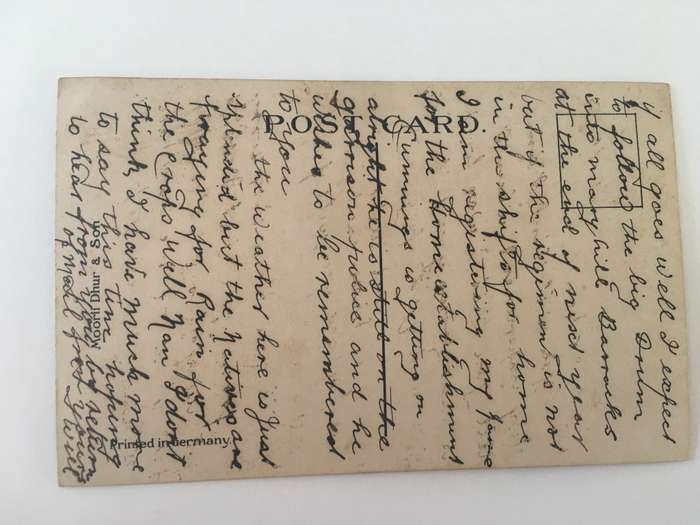 if all goes well I expect
to follow the big Drum
into Maryhill Barracks
at the end of next year
but if the regiment is not
in the ships for home
I am registering my name
for the Home establishment
Cummings is getting on
alright he is still in the
garrison police and he
wishes to be remembered
to you
the weather here is just
splendid but the Natives are
praying for Rain for
the crops well Nan I dont
think I have much more
to say this time hoping
to hear from you by return
of mail from yours
Will
POST CARD.
Moorli Dhur. & Son
Printed in Germany